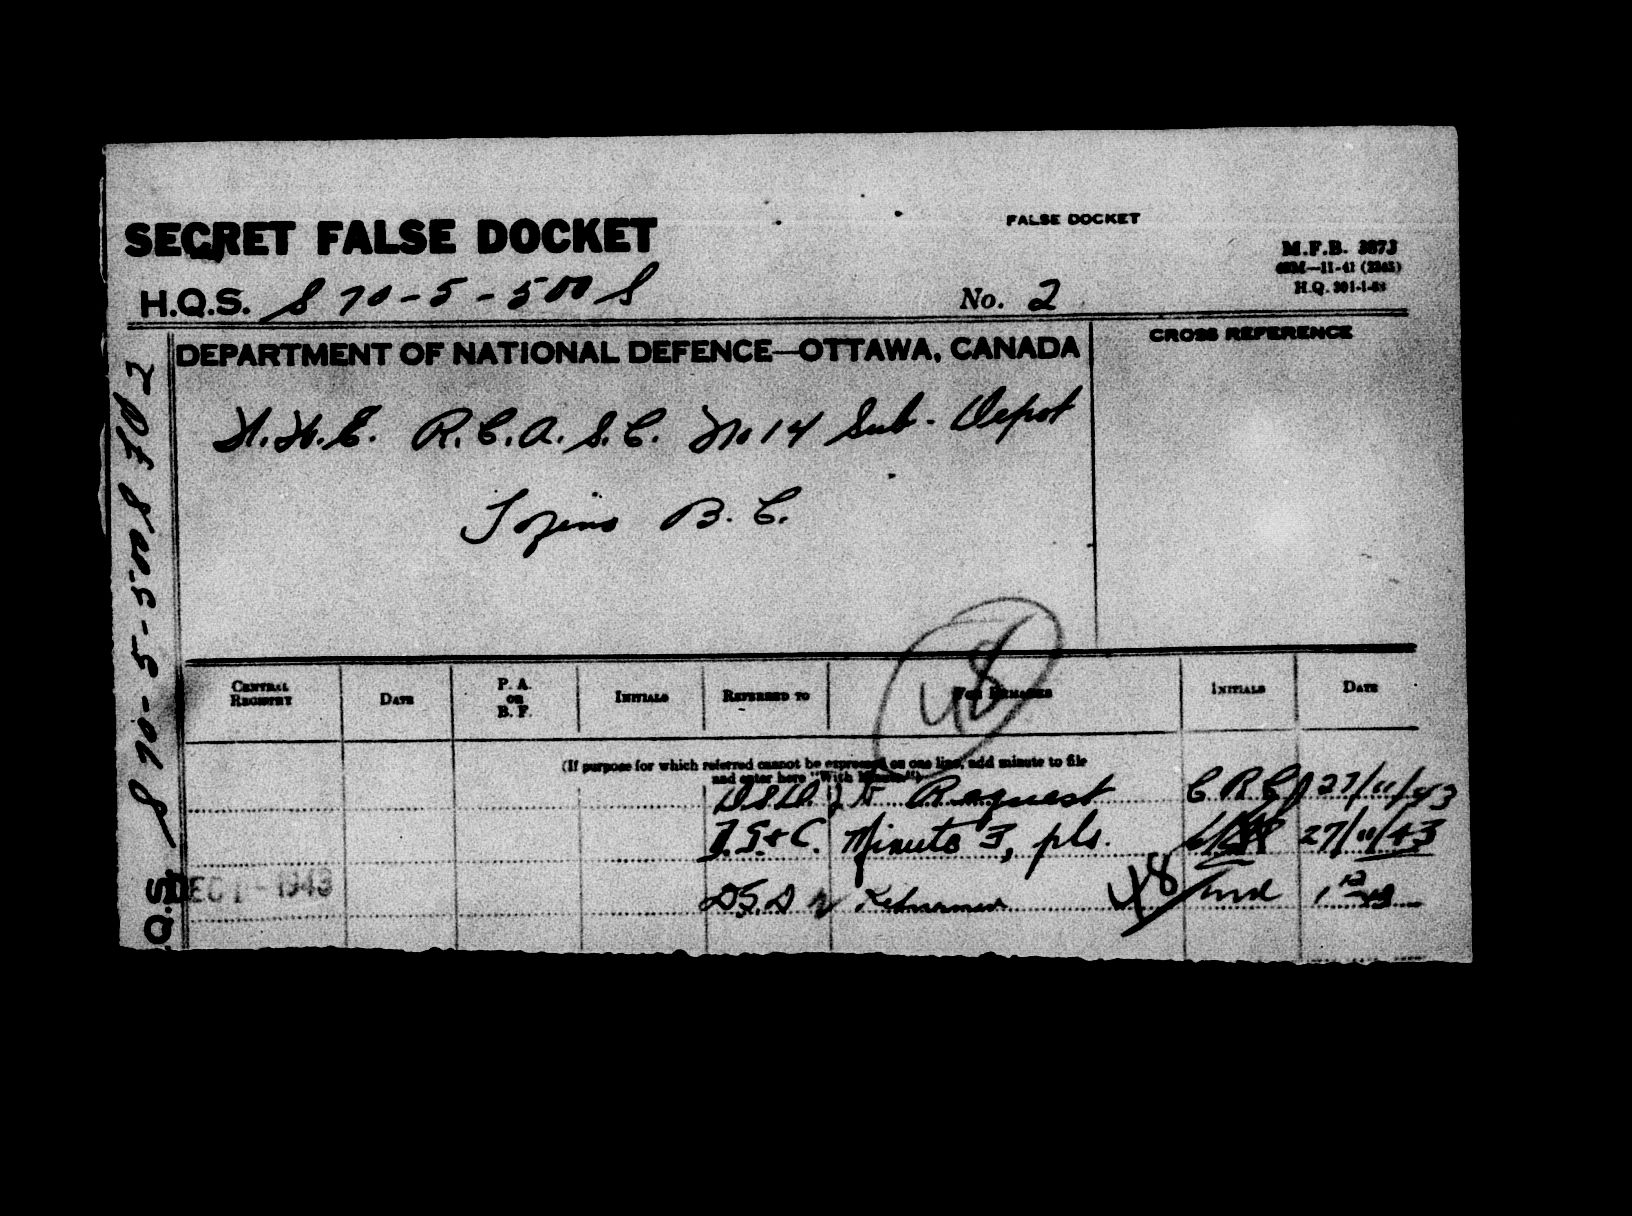 SECRET FALSE DOCKET
FALSE DOCKET
M.F.B. 387J
H.Q.S. S 70-5-500 S
No. 2
CROSS REFERENCE
DEPARTMENT OF NATIONAL DEFENCE—OTTAWA, CANADA
W.H.E. R.C.A.S.C. No 14 Sub. Depot
Tofino B.C.
H.Q.S. S 70-5-500 S FD 2
48
CENTRAL REGISTRY
DATE
P. A. OR B. F.
INITIALS
REFERRED TO
FOR REMARKS
INITIALS
DATE
(If purpose for which referred cannot be expressed on one line, add minute to file
and enter here "With Minute")
Request 27/11/43
Minute 3, pls. 27/11/43
DEC 1 - 1943
48